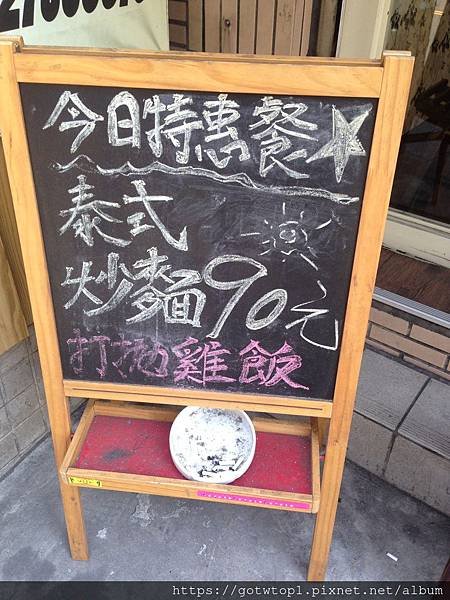 今日特惠餐
泰式
炒麵90元
打拋雞飯
https://gotwtop1.pixnet.net/album